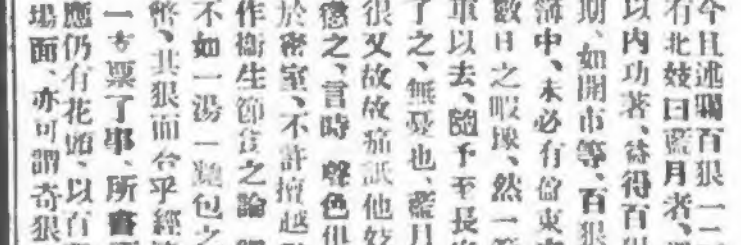 今且述嫖百狠一二
有北妓曰藍月者、
以内功著、客得百狠
期、如開市等、百狠
海中、未必有富東
數日之暇、然一
車以去、隨手至長
了之、無憂也、藍月
很又故故痛詆他妓
懲之、言時聲色俱
於密室、不許擅越
作衞生節食之論
不如一湯一麵包之
幣、其狠而合乎經濟
一支票了事、所
應仍有花頭、以百
場面、亦可謂奇狠